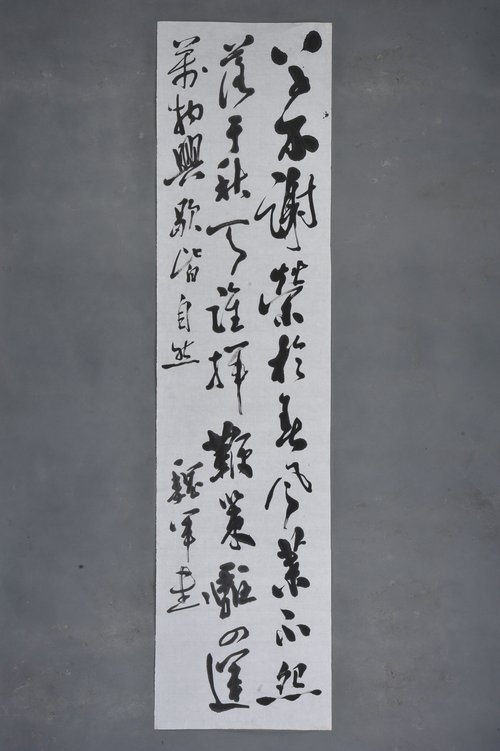 草不謝榮於春風葉不怨
落于秋天誰揮鞭策驅四運
萬物興歇皆自然
魏軍書